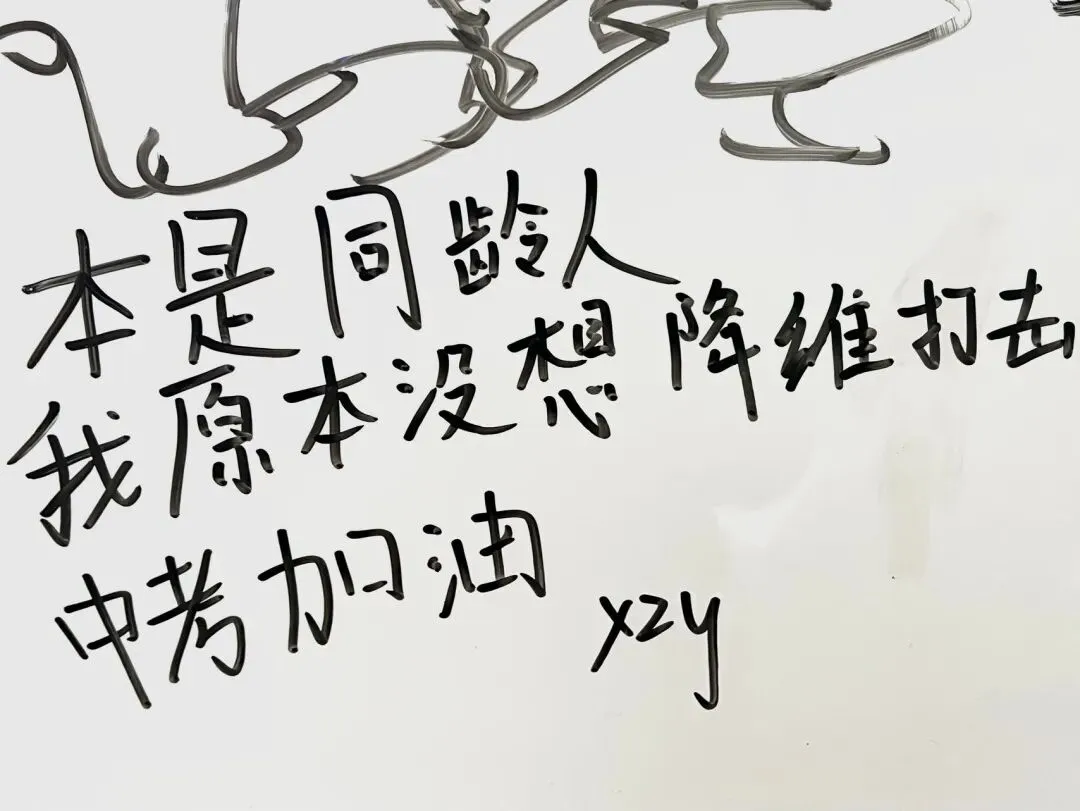 本是同龄人
我原本没想降维打击
中考加油 xzy